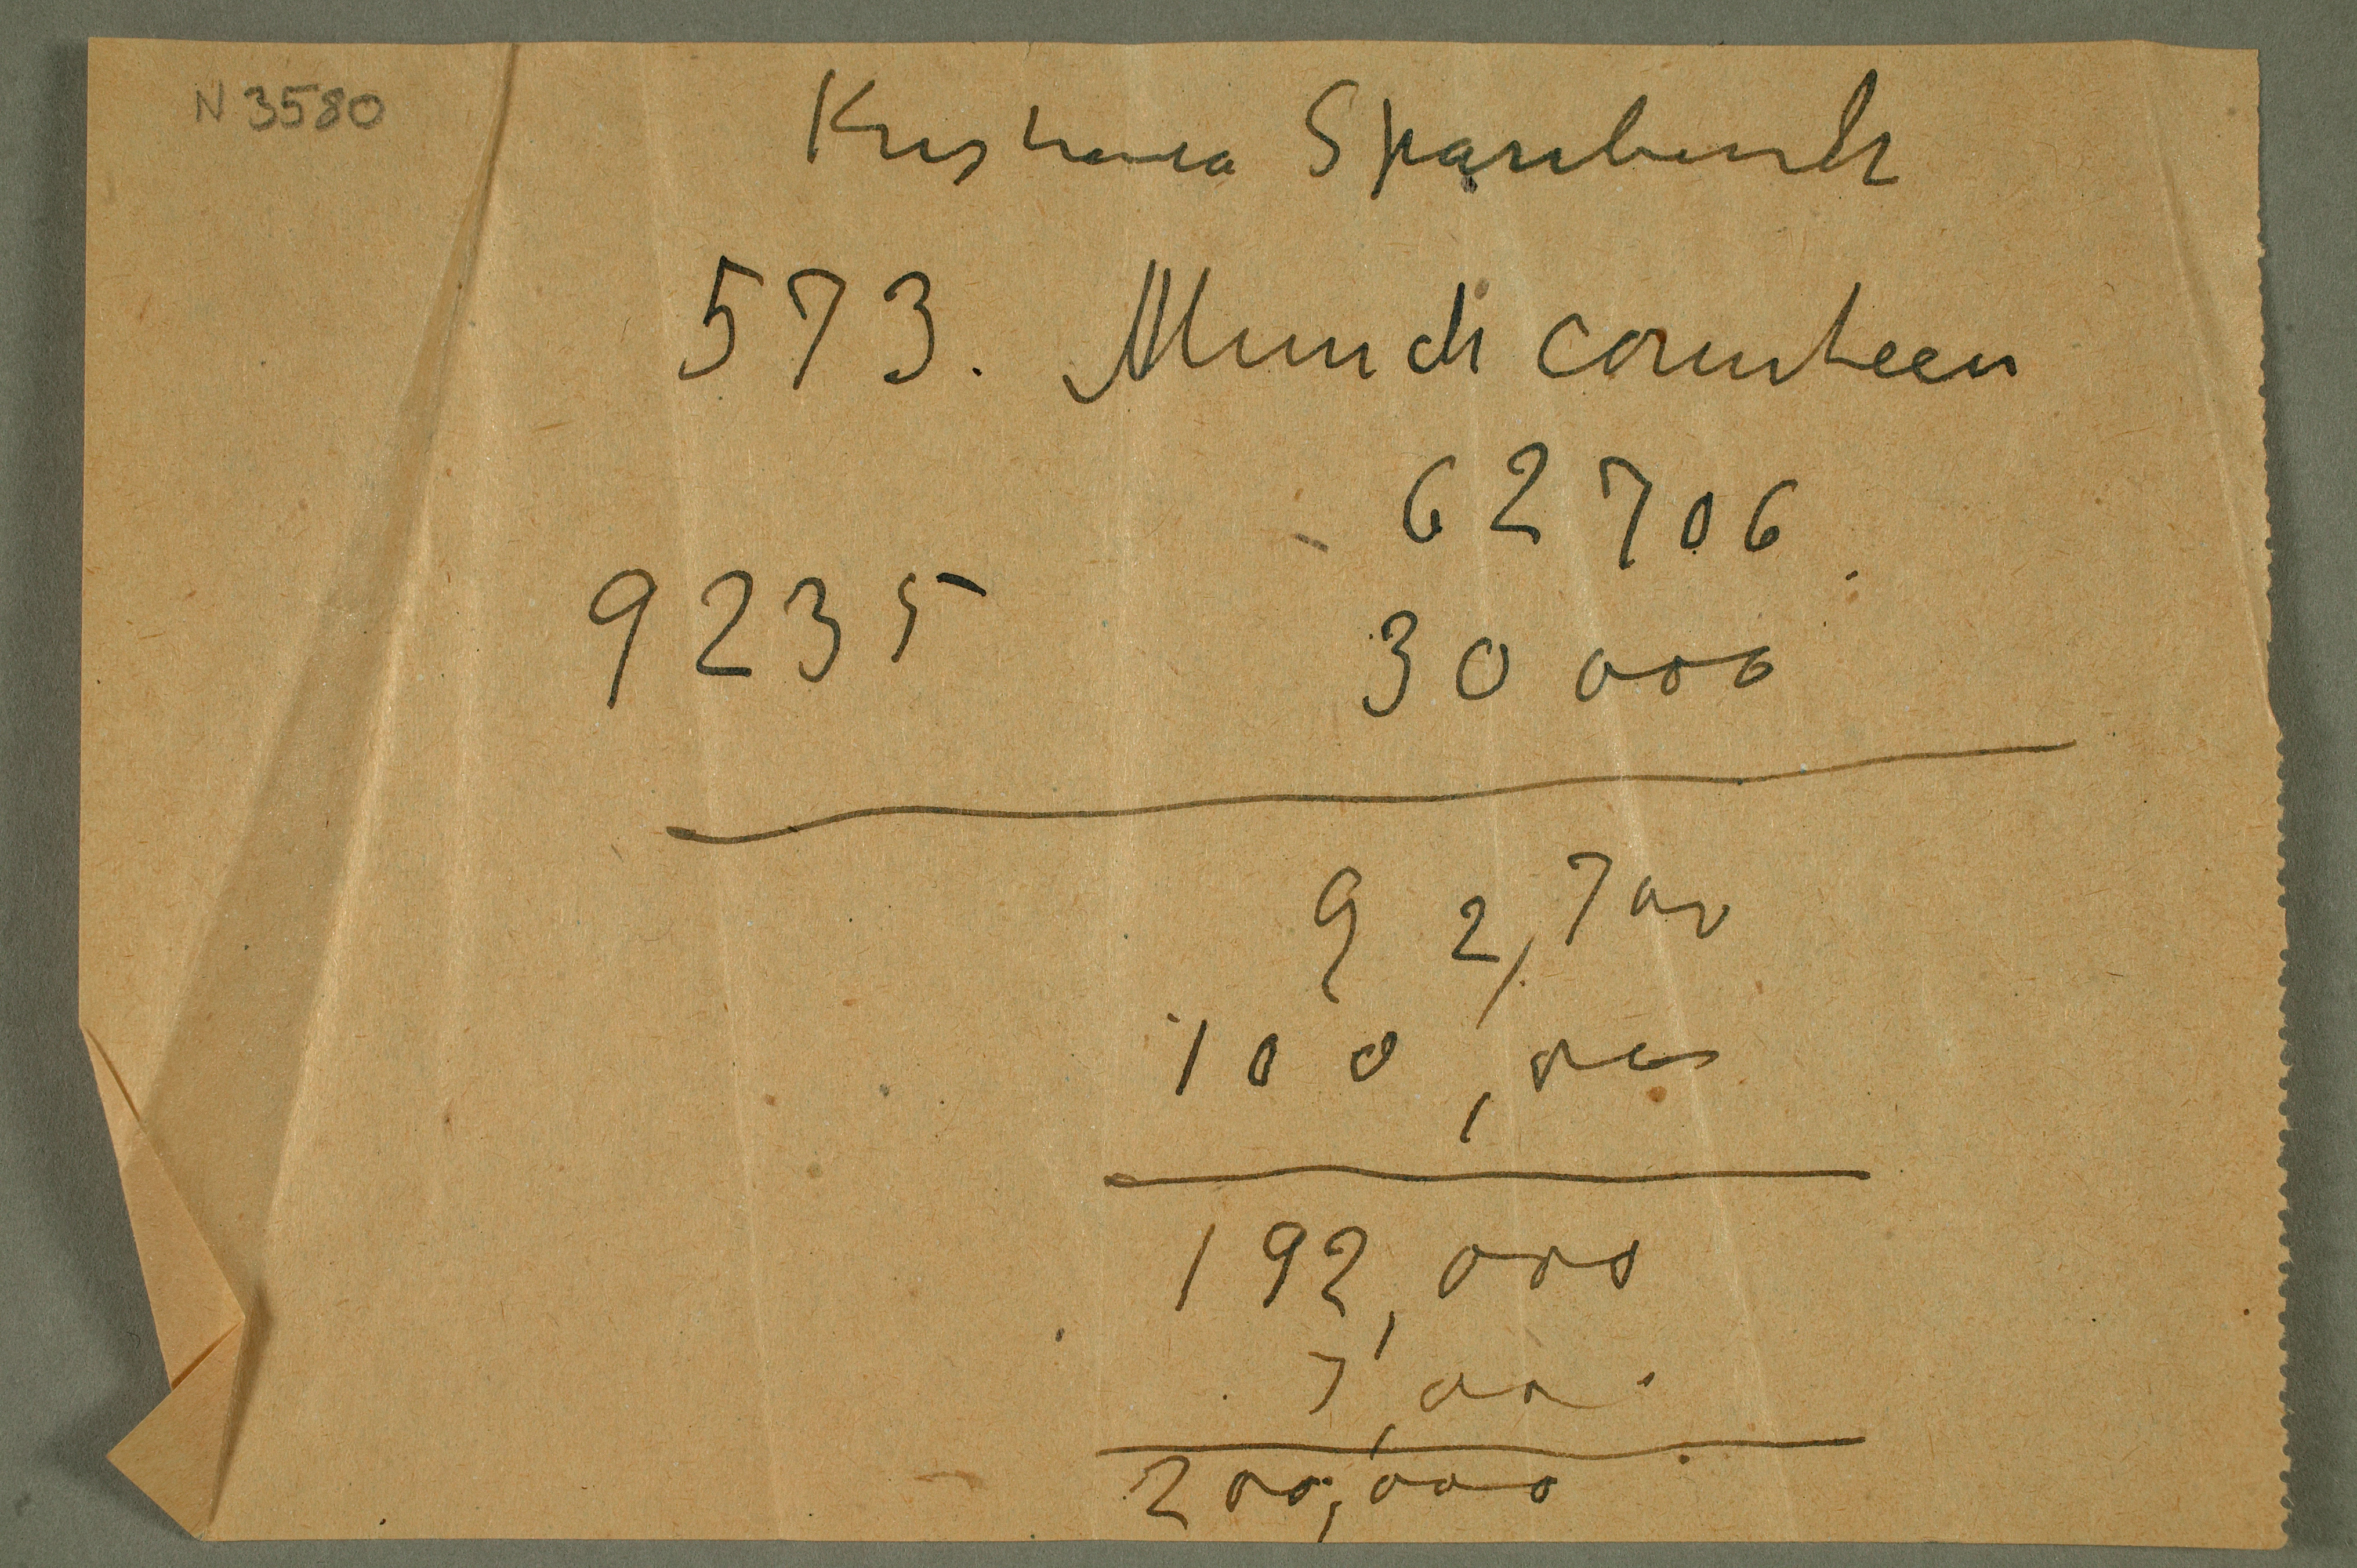 N 3580
Kristiania Sparebank
573. Munch
62706.
9235 30000
92,700
100,000
192,000
7,000
200,000